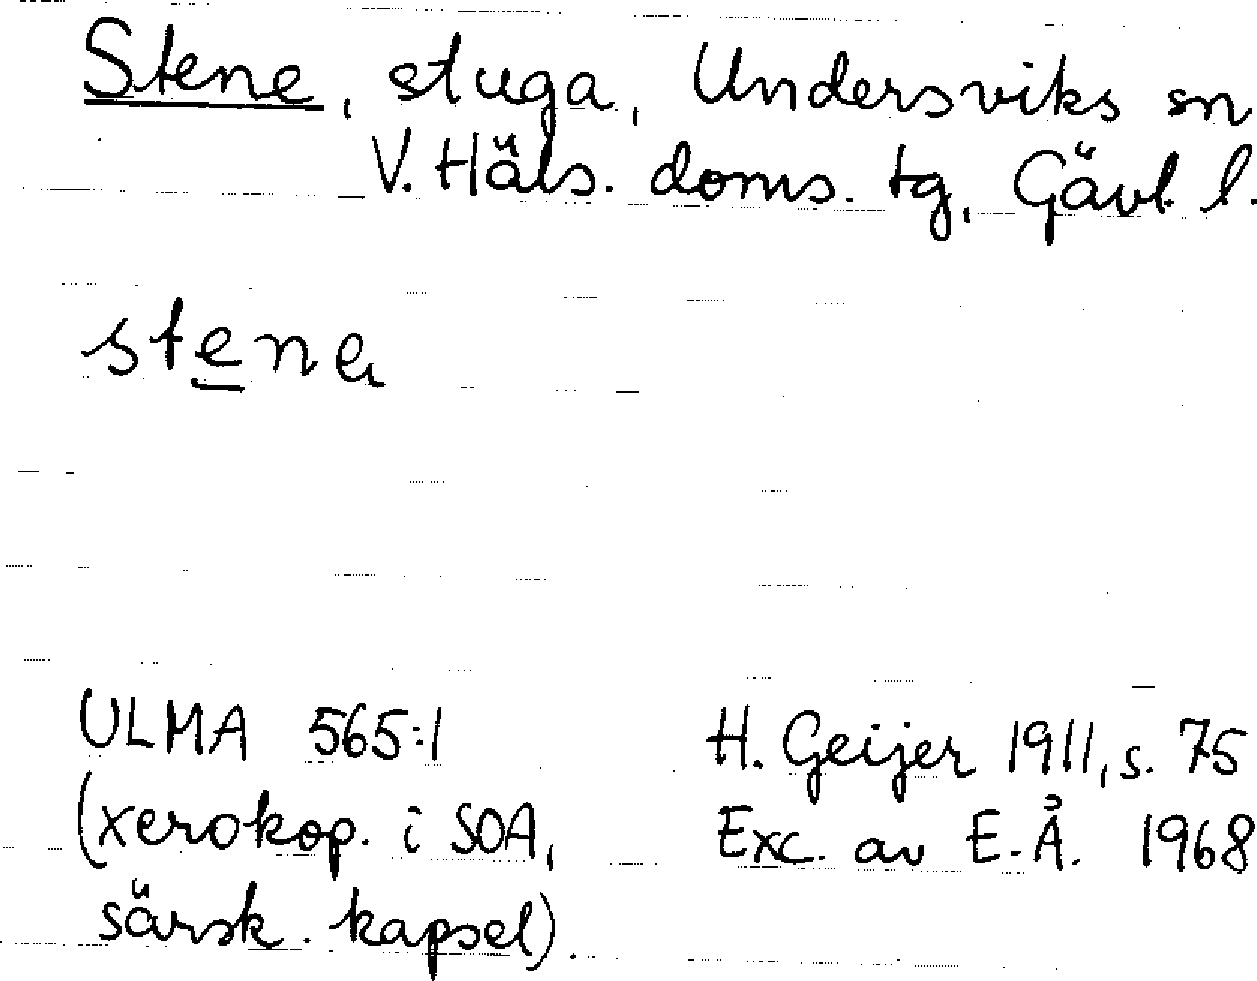 Stene, stuga, Undersviks sn
V. Häls. doms. tg, Gävl. l.
stene
ULMA 565:1
(xerokop. i SOA,
särsk. kapsel).
H. Geijer 1911, s. 75
Exc. av E.Å. 1968